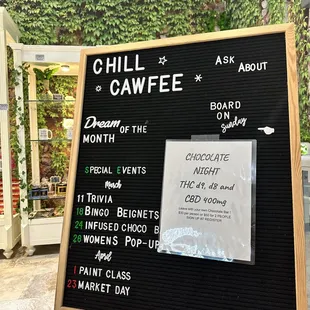 CHILL
CAWFEE
ASK ABOUT
BOARD
ON
Sunday
Dream OF THE
MONTH
SPECIAL EVENTS
March
11 TRIVIA
18 BINGO BEIGNETS
24 INFUSED CHOCO B
28 WOMENS POP-UP
April
1 PAINT CLASS
23 MARKET DAY
CHOCOLATE
NIGHT
THC d9, d8 and
CBD 400mg